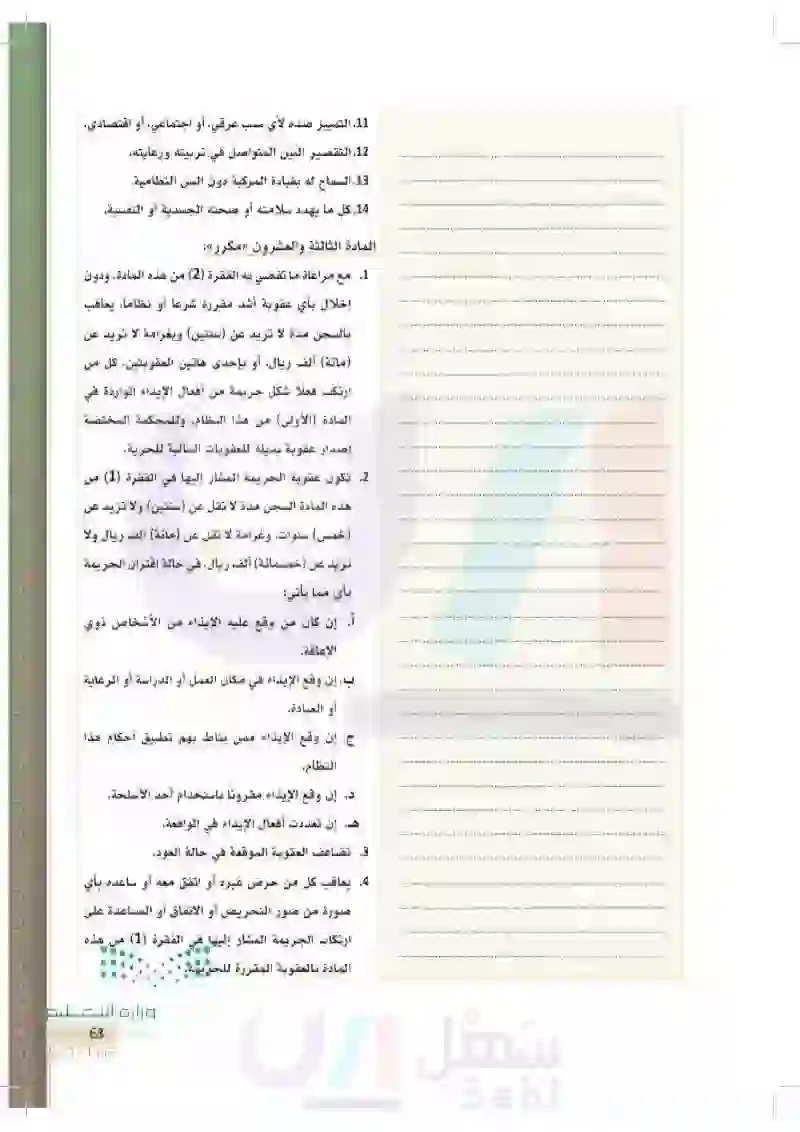 11. التمييز ضده لأي سبب عرقي، أو اجتماعي، أو اقتصادي.
12. التقصير البين المتواصل في تربيته ورعايته.
13. السماح له بقيادة المركبة دون السن النظامية.
14. كل ما يهدد سلامته أو صحته الجسدية أو النفسية.
المادة الثالثة والعشرون «مكرر»:
1. مع مراعاة ما تقضي به الفقرة (2) من هذه المادة، ودون
إخلال بأي عقوبة أشد مقررة شرعا أو نظاما، يعاقب
بالسجن مدة لا تزيد عن (سنتين) وبغرامة لا تزيد عن
(مائة) ألف ريال، أو بإحدى هاتين العقوبتين، كل من
ارتكب فعلا شكل جريمة من أفعال الإيذاء الواردة في
المادة (الأولى) من هذا النظام، وللمحكمة المختصة
إصدار عقوبة بديلة للعقوبات السالبة للحرية.
2. تكون عقوبة الجريمة المشار إليها في الفقرة (1) من
هذه المادة السجن مدة لا تقل عن (سنتين) ولا تزيد عن
(خمس) سنوات، وغرامة لا تقل عن (مائة) ألف ريال ولا
تزيد عن (خمسمائة) ألف ريال، في حالة اقتران الجريمة
بأي مما يأتي:
أ. إن كان من وقع عليه الإيذاء من الأشخاص ذوي
الإعاقة.
ب. إن وقع الإيذاء في مكان العمل أو الدراسة أو الرعاية
أو العبادة.
ج. إن وقع الإيذاء ممن يناط بهم تطبيق أحكام هذا
النظام.
د. إن وقع الإيذاء مقرونا باستخدام أحد الأسلحة.
هـ. إن تعددت أفعال الإيذاء في الواقعة.
3. تضاعف العقوبة الموقعة في حالة العود.
4. يعاقب كل من حرض غيره أو اتفق معه أو ساعده بأي
صورة من صور التحريض أو الاتفاق أو المساعدة على
ارتكاب الجريمة المشار إليها في الفقرة (1) من هذه
المادة بالعقوبة المقررة للجريمة.
وزارة التعليم
63
سهل
Sahl